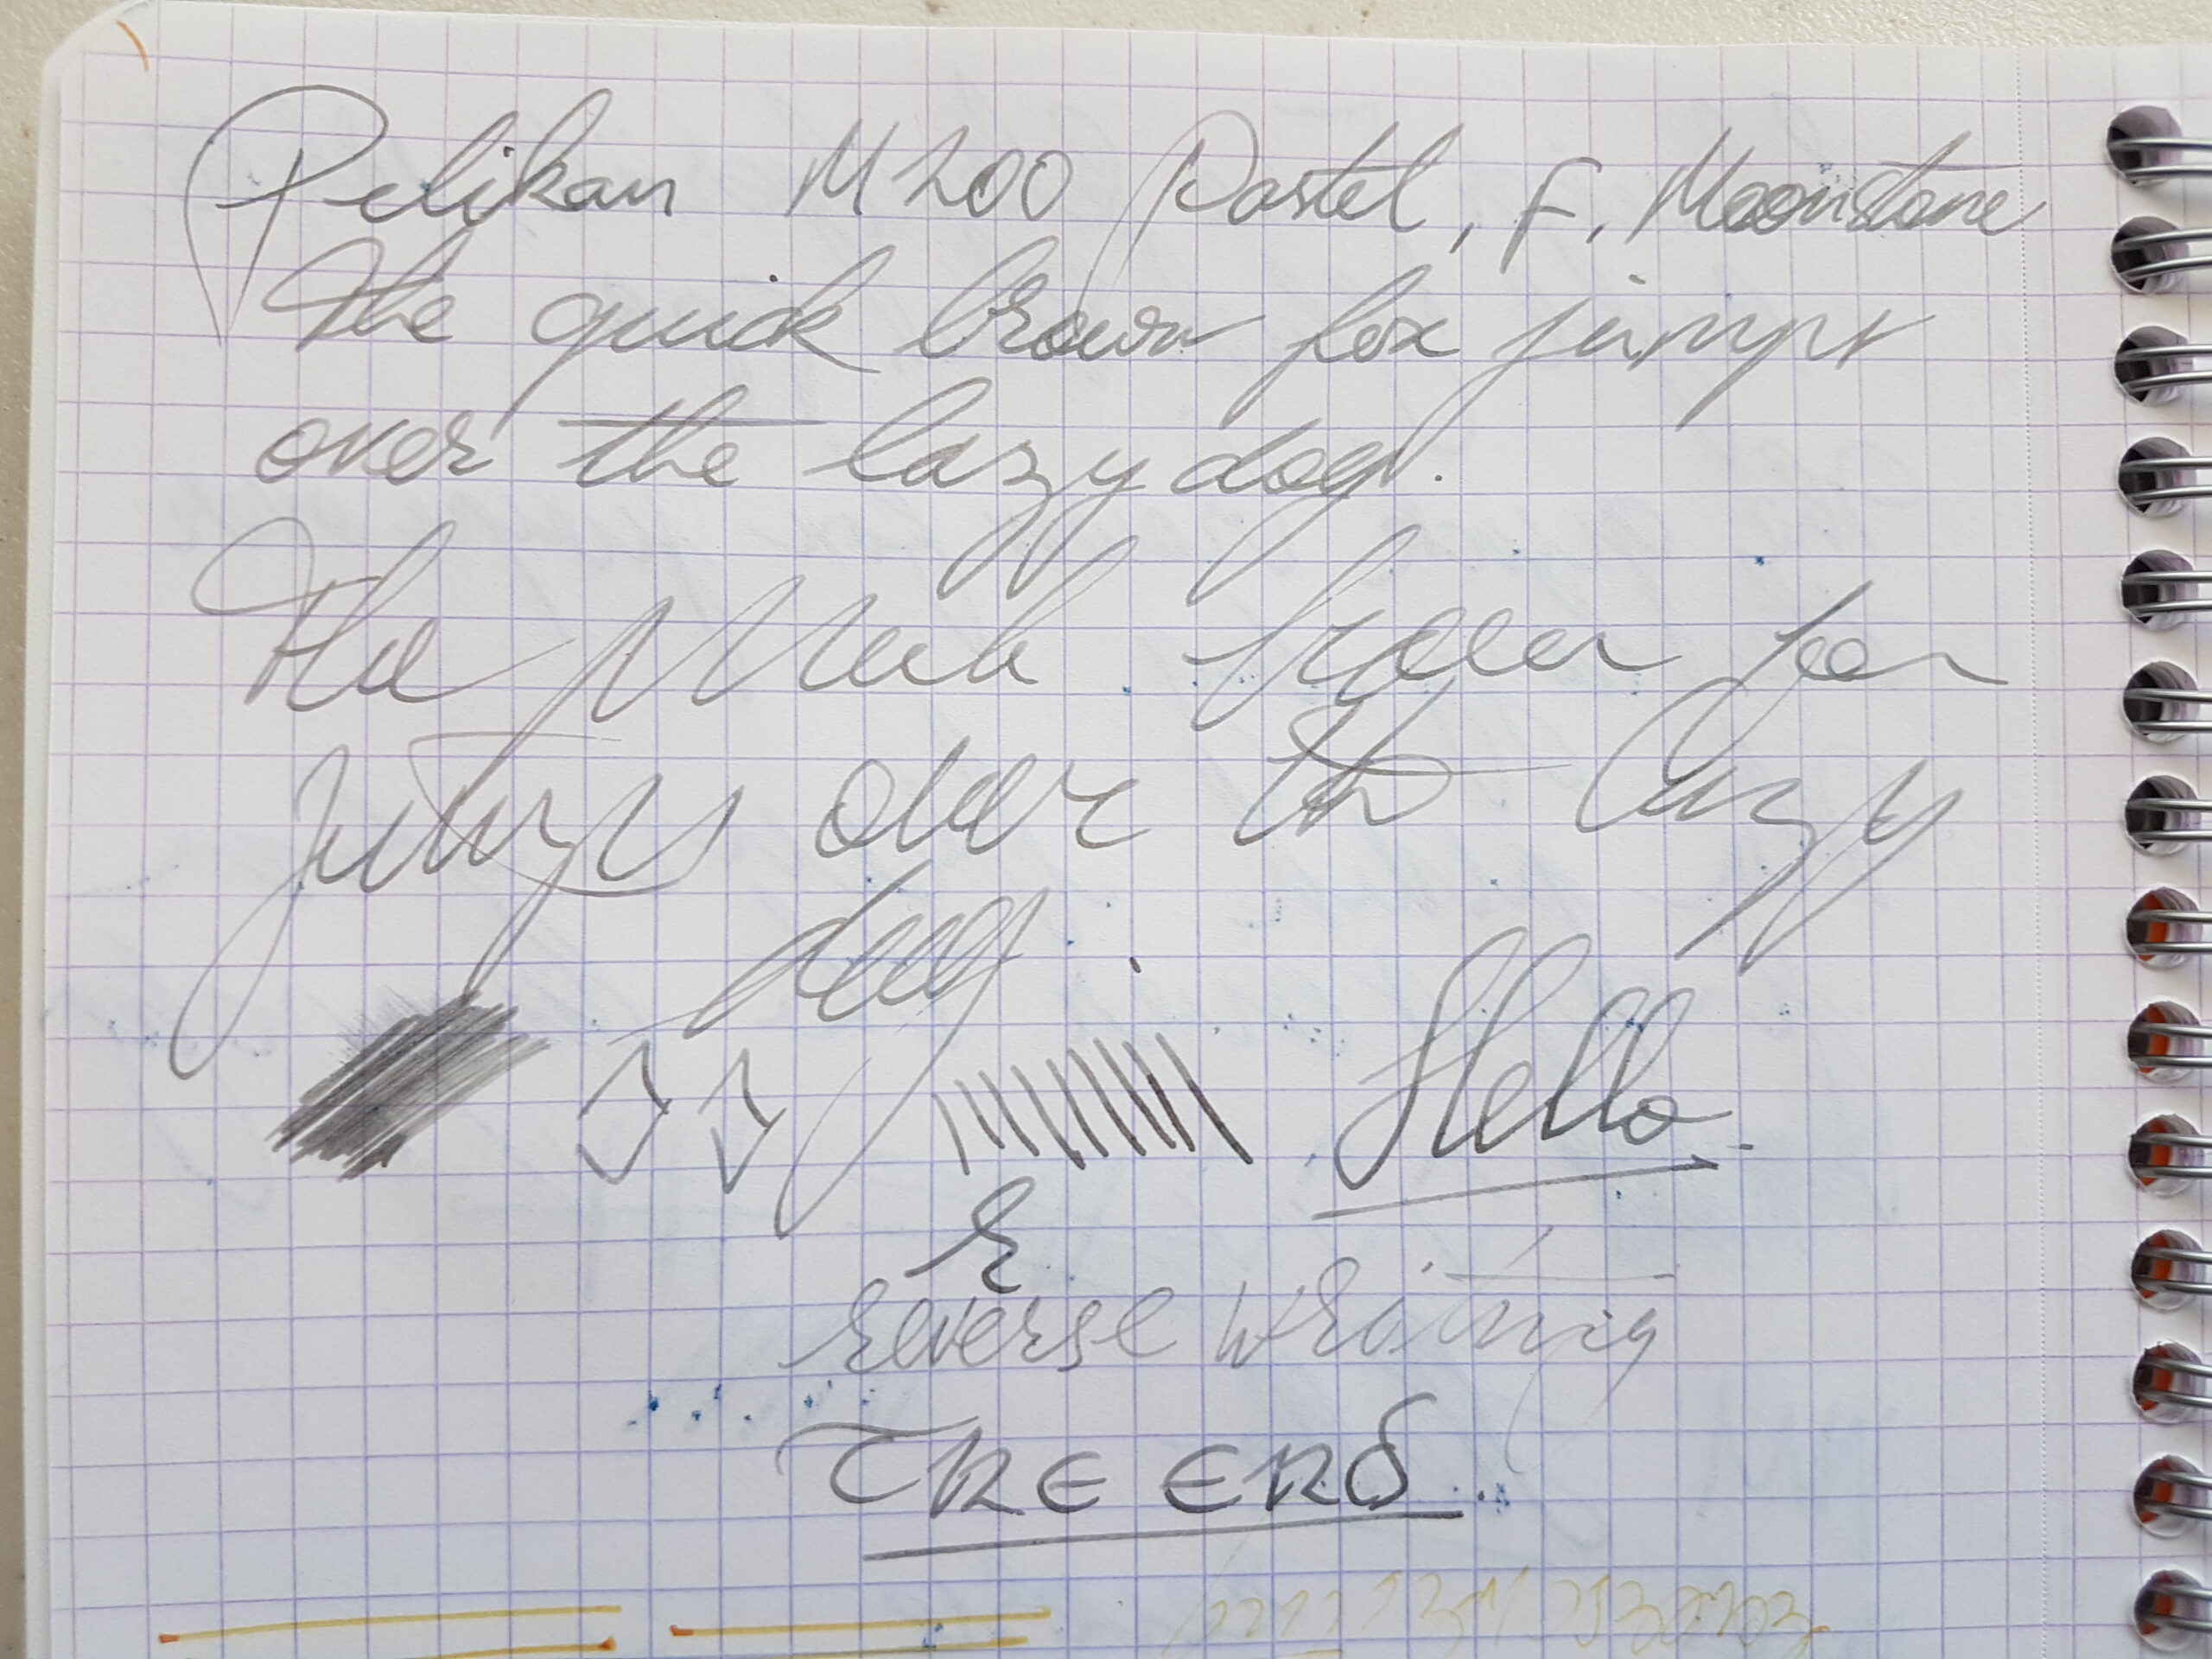 Pelikan M200 Pastel, F, Moonstone
The quick brown fox jumps
over the lazy dog.
The quick brown fox
jumps over the lazy
dog.
Hello
R
Reverse writing
THE END